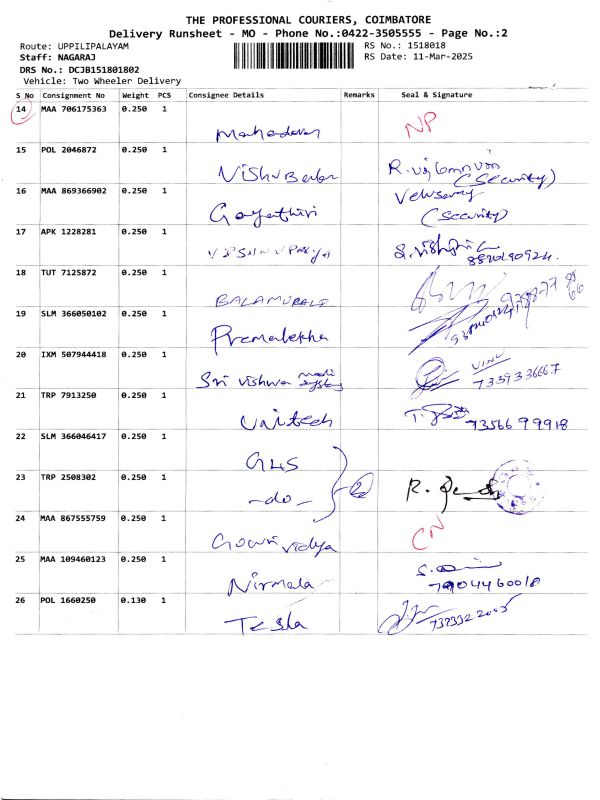 THE PROFESSIONAL COURIERS, COIMBATORE
Delivery Runsheet - MO - Phone No.:0422-3505555 - Page No.:2
Route: UPPILIPALAYAM
RS No.: 1518018
Staff: NAGARAJ
RS Date: 11-Mar-2025
DRS No.: DCJB151801802
Vehicle: Two Wheeler Delivery
S_No Consignment No Weight PCS Consignee Details Remarks Seal & Signature
14 MAA 706175363 0.250 1
Mahadevan NP
15 POL 2046872 0.250 1
Vishu
16 MAA 869366902 0.250 1
(Security)
Gayathiri (Security)
17 APK 1228281 0.250 1
18 TUT 7125872 0.250 1
BALAMURALI
19 SLM 366050102 0.250 1
Premalekha
20 IXM 507944418 0.250 1
VINU
Sri Vishwa 7359336667
21 TRP 7913250 0.250 1
Unitech 7356699918
22 SLM 366046417 0.250 1
GHS
23 TRP 2508302 0.250 1
-do- 2
24 MAA 867555759 0.250 1
Gowri vidya CN
25 MAA 109460123 0.250 1
Nirmala 7904460018
26 POL 1660250 0.130 1
Tesla